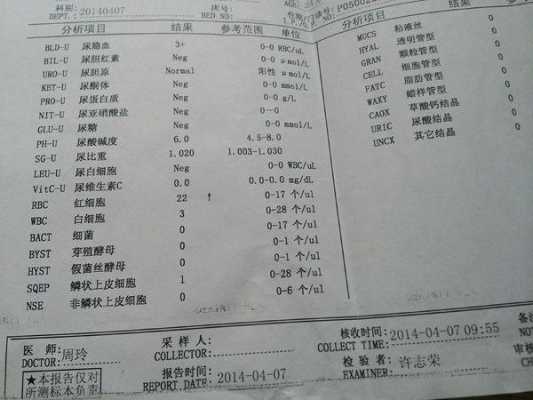 科别:
床号:
DEPT.: 20140407
BED NO:
分析项目 结果 参考范围 单位
BLD-U 尿隐血 3+ 0-0 RBC/uL
BIL-U 尿胆红素 Neg 0-0 umol/L
URO-U 尿胆原 Normal 阳性 umol/L
KET-U 尿酮体 Neg 0-0 mmol/L
PRO-U 尿蛋白质 Neg 0-0 g/L
NIT-U 尿亚硝酸盐 Neg 0--0
GLU-U 尿糖 Neg 0-0 mmol/L
PH-U 尿酸碱度 6.0 4.5-8.0
SG-U 尿比重 1.020 1.003-1.030
LEU-U 尿白细胞 Neg 0-0 WBC/uL
VitC-U 尿维生素C 0.0 0.0-0.0 mg/dL
RBC 红细胞 22 ↑ 0-17 个/ul
WBC 白细胞 3 0-28 个/ul
BACT 细菌 0 0-17 个/ul
BYST 芽殖酵母 0 0-1 个/ul
HYST 假菌丝酵母 0 0-1 个/ul
SQEP 鳞状上皮细胞 1 0-28 个/ul
NSE 非鳞状上皮细胞 0 0-6 个/ul
分析项目 结果
MUCS 粘液丝 0
HYAL 透明管型 0
GRAN 颗粒管型 0
CELL 细胞管型 0
FATC 脂肪管型 0
WAXY 蜡样管型 0
CAOX 草酸钙结晶 0
URIC 尿酸结晶 0
UNCX 其它结晶 0
医师: 周玲
DOCTOR:
采样人:
COLLECTOR:
核收时间: 2014-04-07 09:55
COLLECT TIME:
报告时间: 2014-04-07
REPORT DATE:
检验者: 许志荣
EXAMINER:
★本报告仅对
所测标本负责